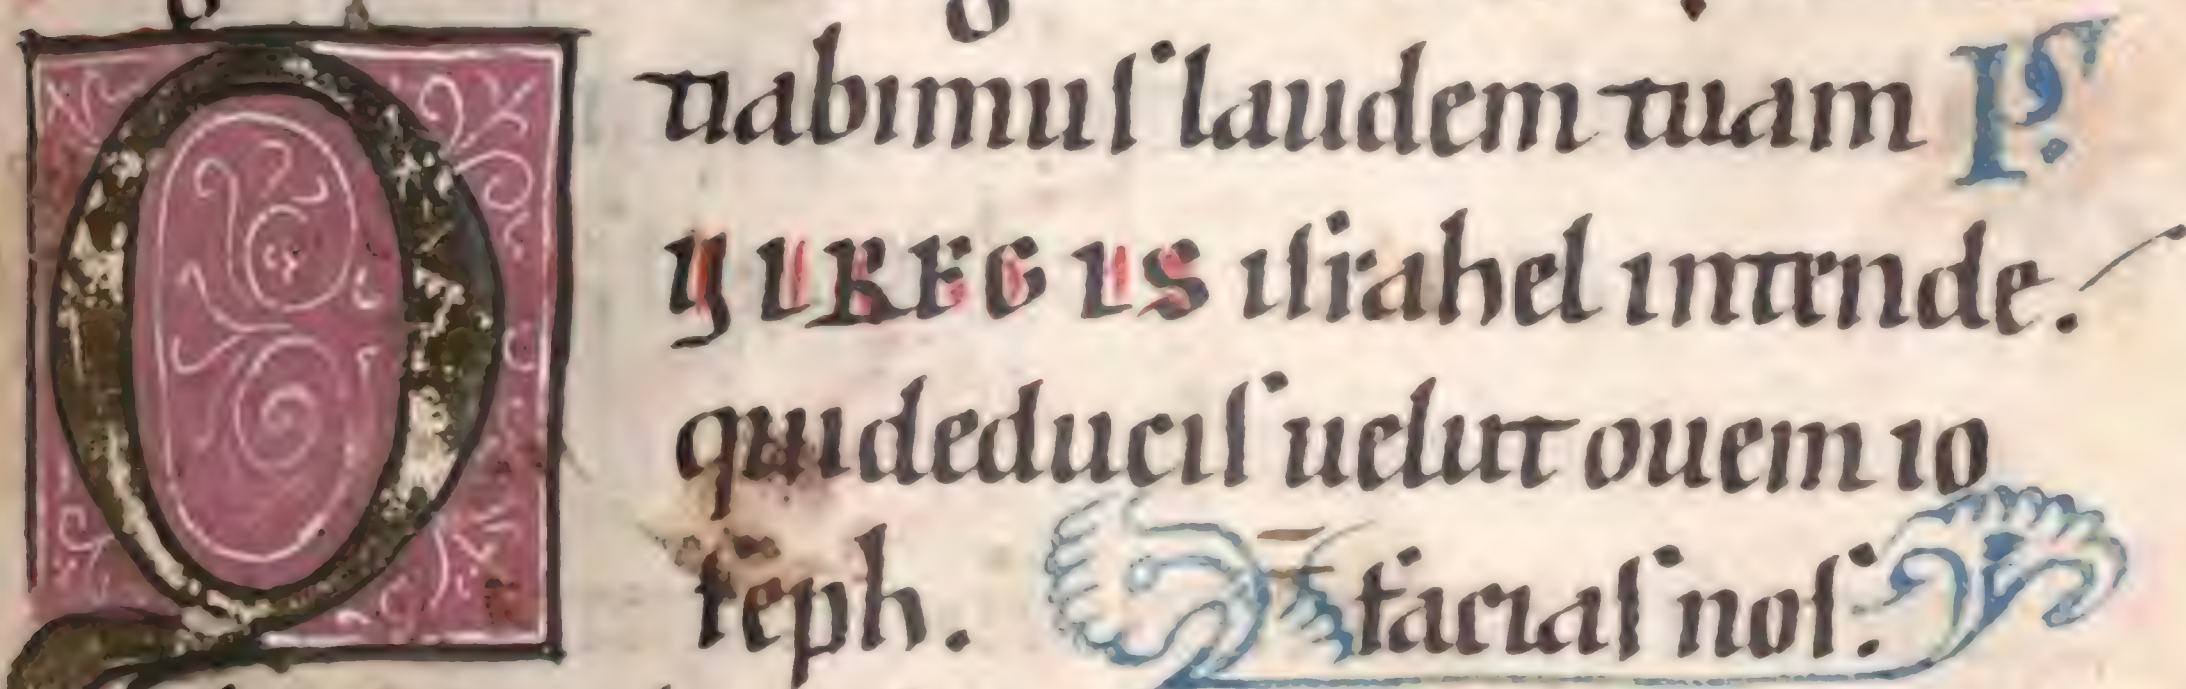 tiabimus laudem tuam Ps.
QUI REGIS israhel intende.
qui deducis uelut ouem io
seph. facias nos.